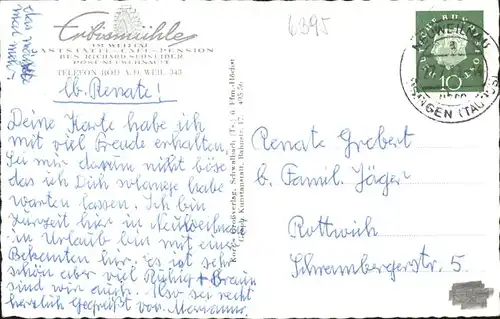 Erbismühle
IM WEILTAL
GASTSTÄTTE - CAFÉ - PENSION
BES. RICHARD SCHNEIDER
POST NEUWEILNAU
TELEFON ROD A. D. WEIL 343
6395
lb. Renate!
Deine Karte habe ich
mit viel Freude erhalten.
Sei mir darum nicht böse
das ich Dich so lange habe
warten lassen. Ich bin
zurzeit hier in Neuweilnau
in Urlaub bin mit einer
Bekannten hier. Es ist sehr
schön aber viel Ruhig + Braun
sind wir auch. Also sei recht
herzlich Gegrüßt von Marianne
Renate Grebert
b. Famil. Jäger
Rottweil
Schrambergerstr. 5
NEUWEILNAU
USINGEN (TAUNUS)
10